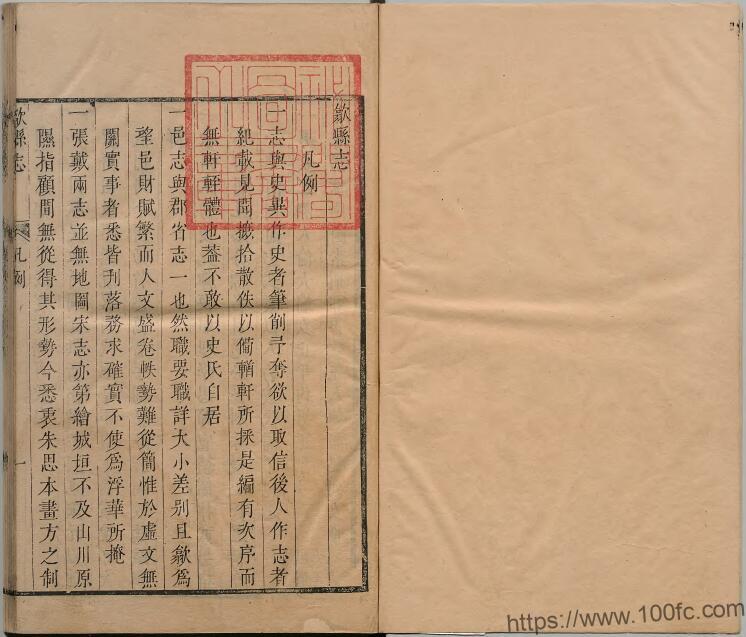 歙縣志
凡例
一志與史異作史者筆削予奪欲以取信後人作志者
紀載見聞摭拾散佚以備輶軒所採是編有次序而
無軒輊體也葢不敢以史氏自居
一邑志與郡省志一也然職要職詳大小差别且歙爲
望邑財賦繁而人文盛卷帙勢難從簡惟於虛文無
關實事者悉皆刋落務求確實不使爲浮華所掩
一張戴兩志並無地圖宋志亦第繪城垣不及山川原
隰指顧間無從得其形勢今悉裏朱思本畫方之制
歙縣志
凡例
一
https://www.100fc.com